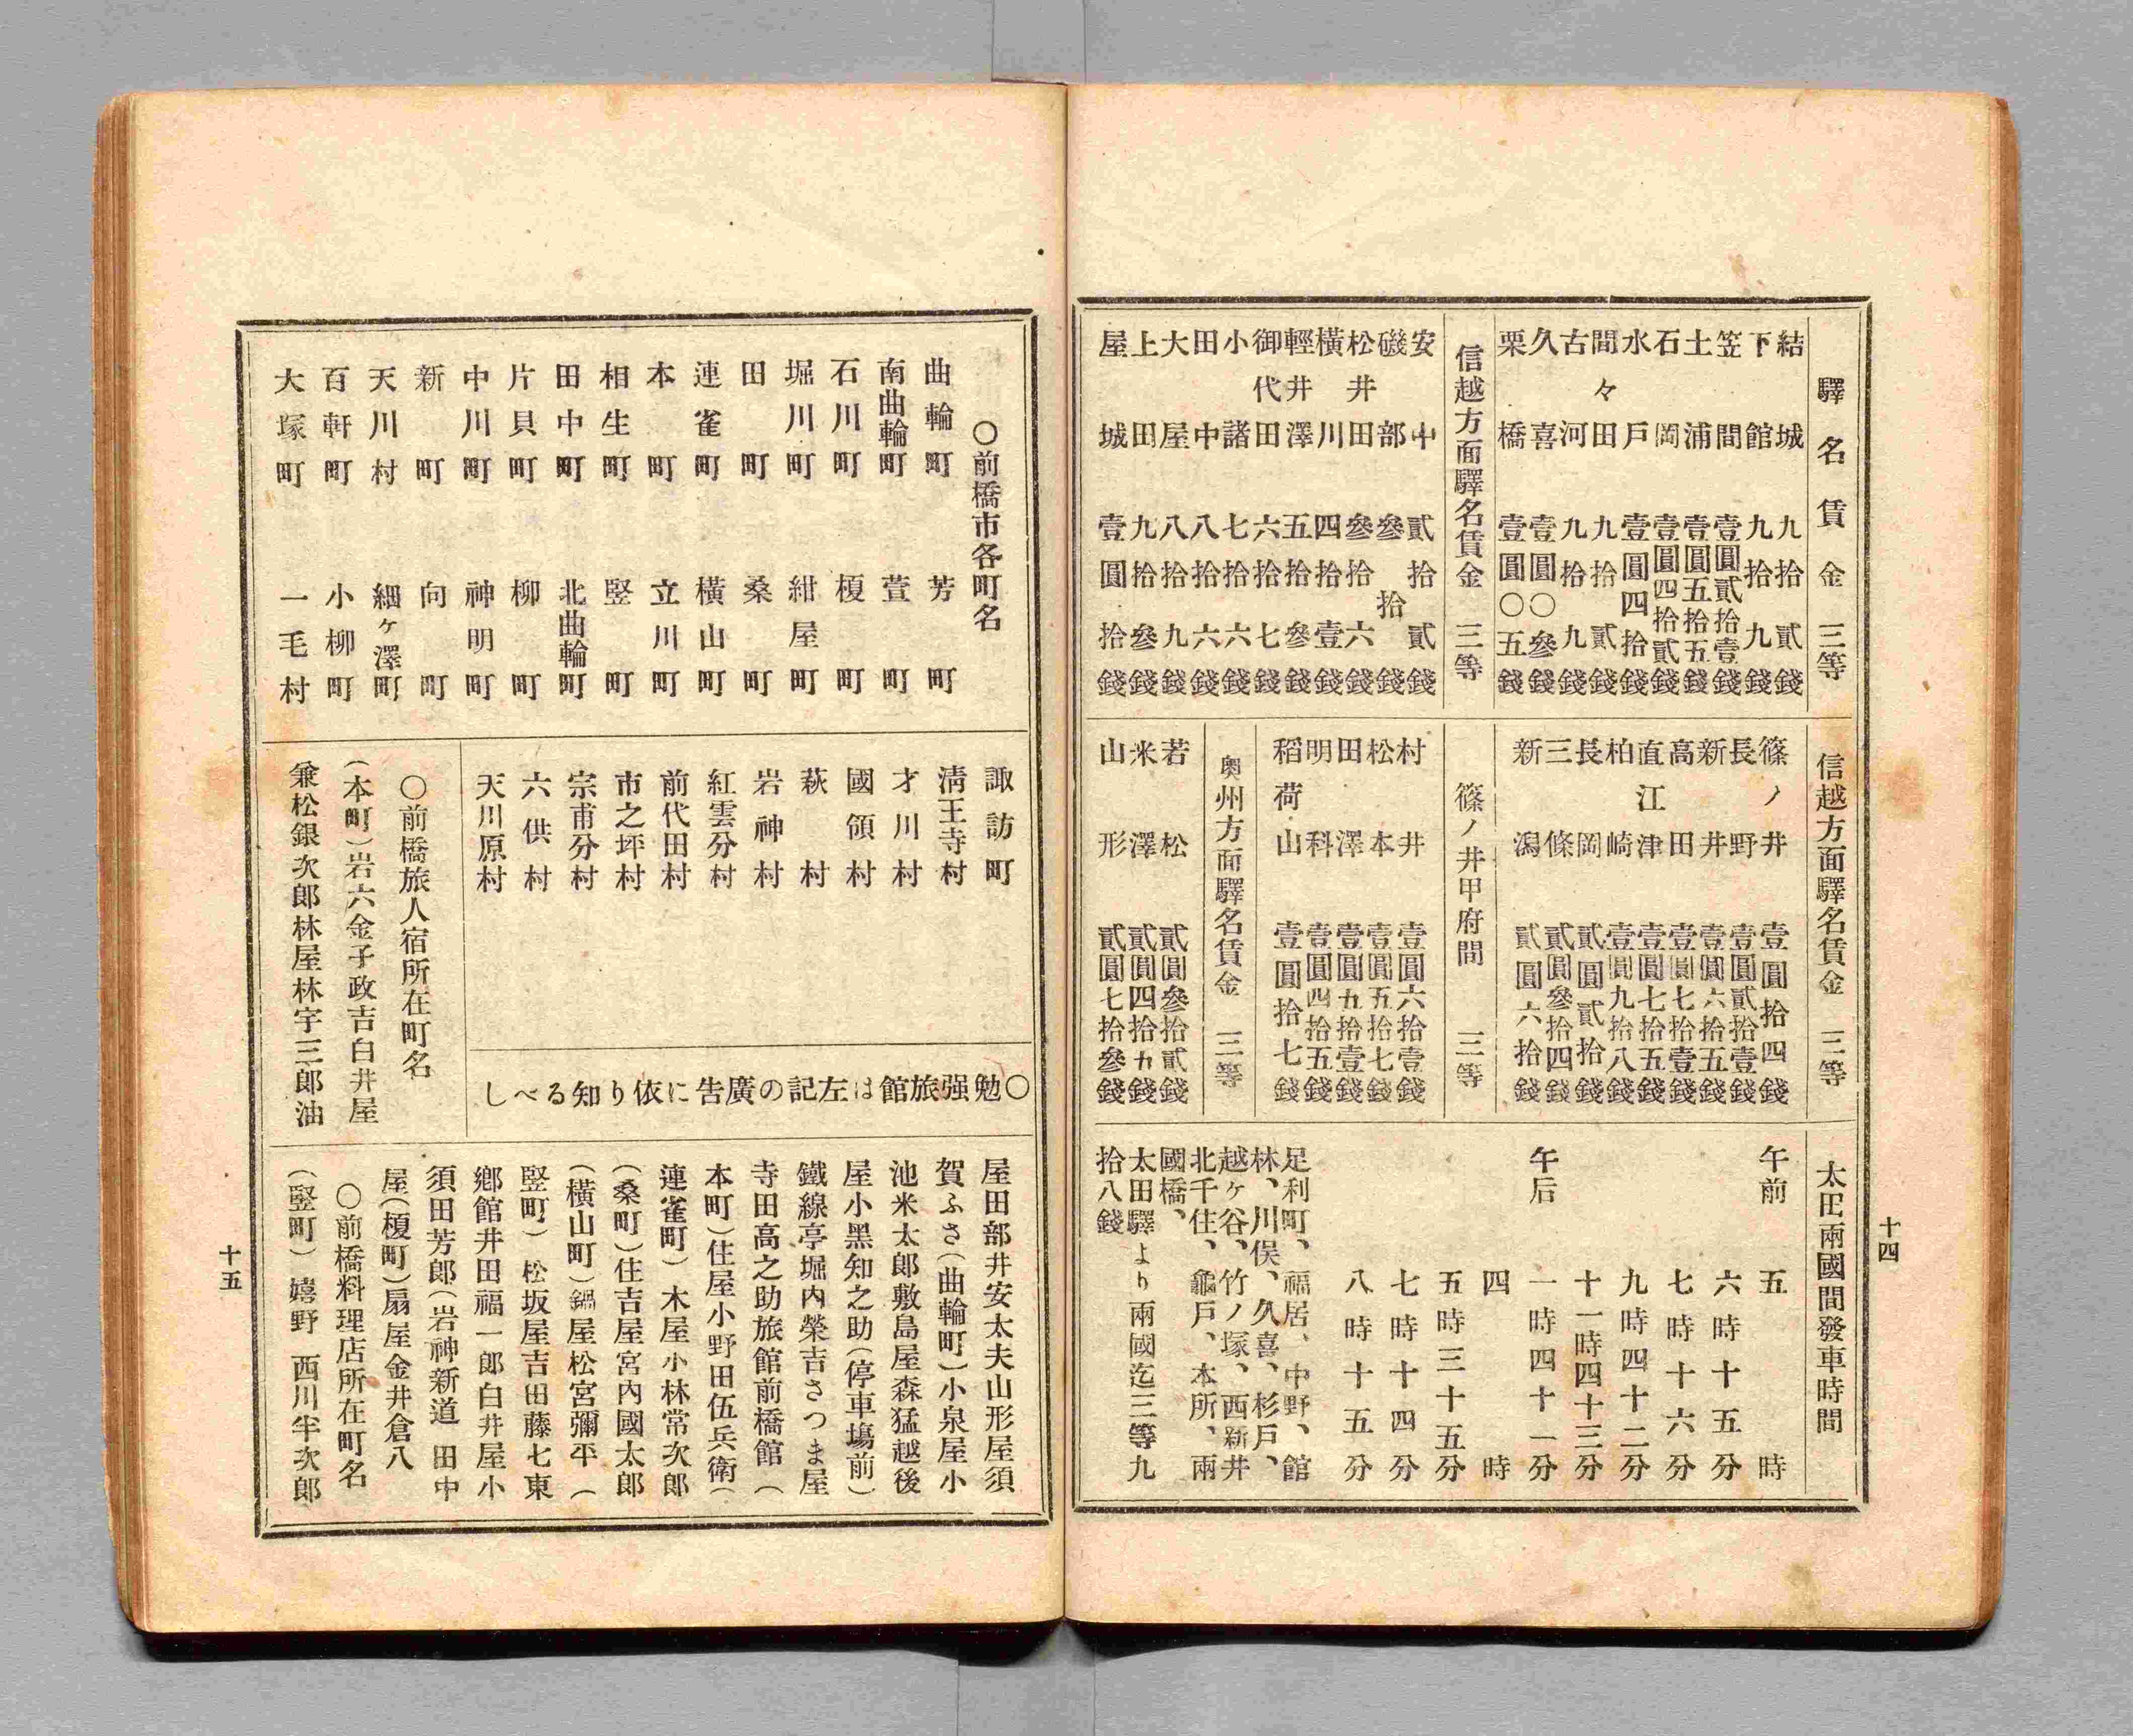 驛名賃金 三等
結城 九拾貳錢
下館 九拾九錢
笠間 壹圓貳拾壹錢
土浦 壹圓五拾五錢
石岡 壹圓四拾貳錢
水戸 壹圓四拾錢
間々田 九拾貳錢
古河 九拾九錢
久喜 壹圓〇參錢
栗橋 壹圓〇五錢
信越方面驛名賃金 三等
安中 貳拾貳錢
磯部 參拾錢
松井田 參拾六錢
横川 四拾壹錢
輕井澤 五拾參錢
御代田 六拾七錢
小諸 七拾六錢
田中 八拾六錢
大屋 八拾九錢
上田 九拾參錢
屋城 壹圓拾錢
信越方面驛名賃金 三等
篠ノ井 壹圓拾四錢
長野 壹圓貳拾壹錢
新井 壹圓六拾五錢
高田 壹圓七拾壹錢
直江津 壹圓七拾五錢
柏崎 壹圓九拾八錢
長岡 貳圓貳拾錢
三條 貳圓參拾四錢
新潟 貳圓六拾錢
篠ノ井甲府間 三等
村井 壹圓六拾壹錢
松本 壹圓五拾七錢
田澤 壹圓五拾壹錢
明科 壹圓四拾五錢
稻荷山 壹圓拾七錢
奥州方面驛名賃金 三等
若松 貳圓參拾貳錢
米澤 貳圓四拾五錢
山形 貳圓七拾參錢
太田兩國間發車時間
午前 五時
六時十五分
七時十六分
九時四十二分
十一時四十三分
午后 一時四十一分
四時
五時三十五分
七時十四分
八時十五分
足利町、福居、中野、館
林、川俣、久喜、杉戸、
越ヶ谷、竹ノ塚、西新井
北千住、龜戸、本所、兩
國橋、
太田驛より兩國迄三等九
拾八錢
十四
〇前橋市各町名
曲輪町 芳町
南曲輪町 萱町
石川町 榎町
堀川町 紺屋町
田町 桑町
連雀町 横山町
本町 立川町
相生町 竪町
田中町 北曲輪町
片貝町 柳町
中川町 神明町
新町 向町
天川村 細ヶ澤町
百軒町 小柳町
大塚町 一毛村
諏訪町
清王寺村
才川村
國領村
萩村
岩神村
紅雲分村
前代田村
市之坪村
宗甫分村
六供村
天川原村
〇勉强旅館は左記の廣告に依り知るべし
〇前橋旅人宿所在町名
(本町)岩六金子政吉白井屋
兼松銀次郎林屋林宇三郎油
屋田部井安太夫山形屋須
賀ふさ(曲輪町)小泉屋小
池米太郎敷島屋森猛越後
屋小黑知之助(停車塲前)
鐵線亭堀内榮吉さつま屋
寺田高之助旅館前橋館(
本町)住屋小野田伍兵衛(
連雀町)木屋小林常次郎
(桑町)住吉屋宮内國太郎
(横山町)鍋屋松宮彌平(
竪町)松坂屋吉田藤七東
鄕館井田福一郎白井屋小
須田芳郎(岩神新道 田中
屋(榎町)扇屋金井倉八
〇前橋料理店所在町名
(竪町)嬉野 西川半次郎
十五